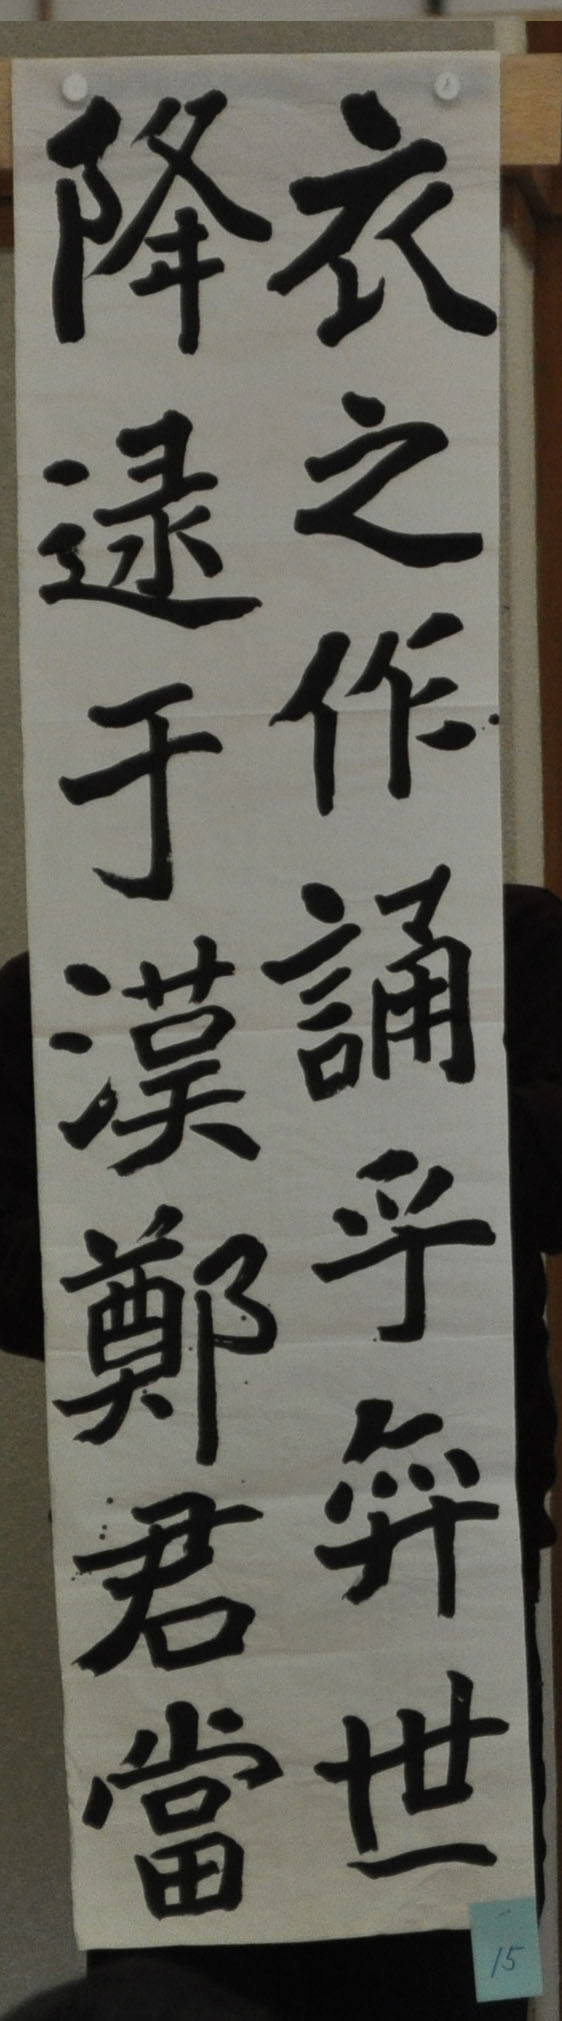 衣之作誦乎弈世
降逮于漢鄭君當
15